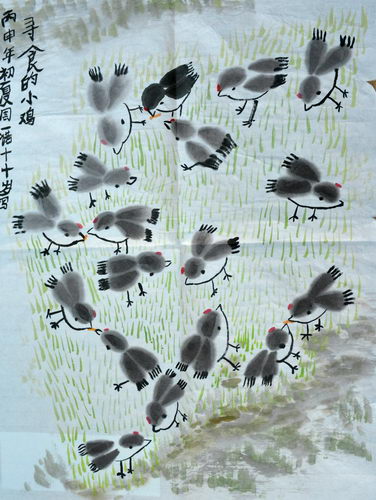 寻食的小鸡
丙申年初夏周一诺十岁写